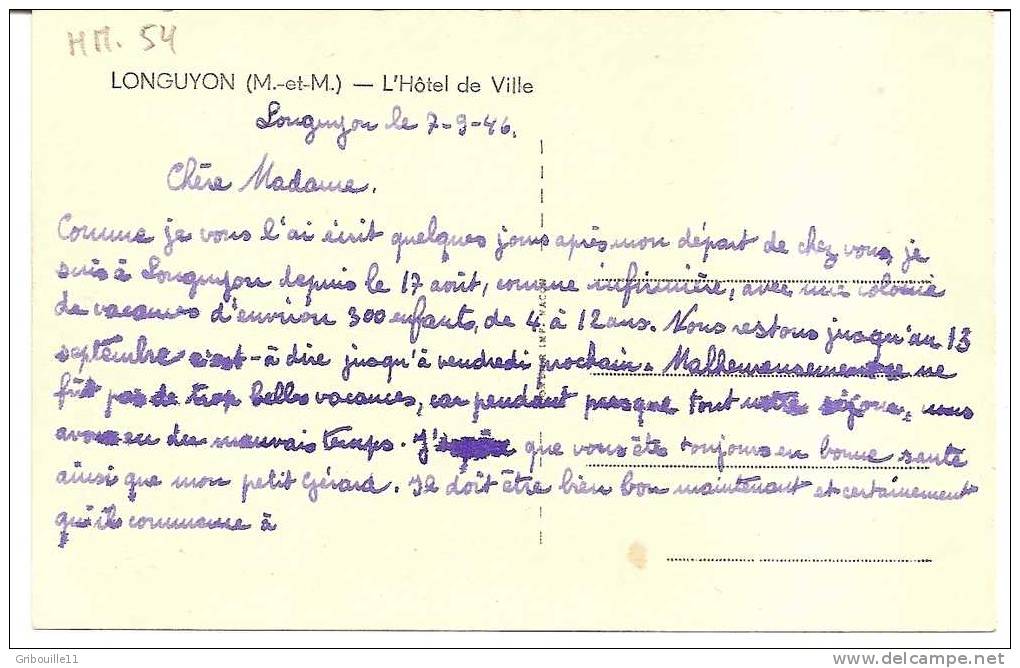 HM. 54
LONGUYON (M.-et-M.) — L'Hôtel de Ville
Longuyon le 7-9-46.
Chère Madame,
Comme je vous l'ai écrit quelques jours après mon départ de chez vous, je
suis à Longuyon depuis le 17 août, comme infirmière, avec une colonie
de vacances d'environ 300 enfants, de 4 à 12 ans. Nous restons jusqu'au 13
septembre c'est-à dire jusqu'à vendredi prochain. Malheureusement ne
fût pas de trop belles vacances, car pendant presque tout notre séjour, nous
avons eu du mauvais temps. J' que vous ête toujours en bonne santé
ainsi que mon petit Gérard. Il doit être bien bon maintenant et certainement
qu'il commence à
Gribouille11
www.delcampe.net